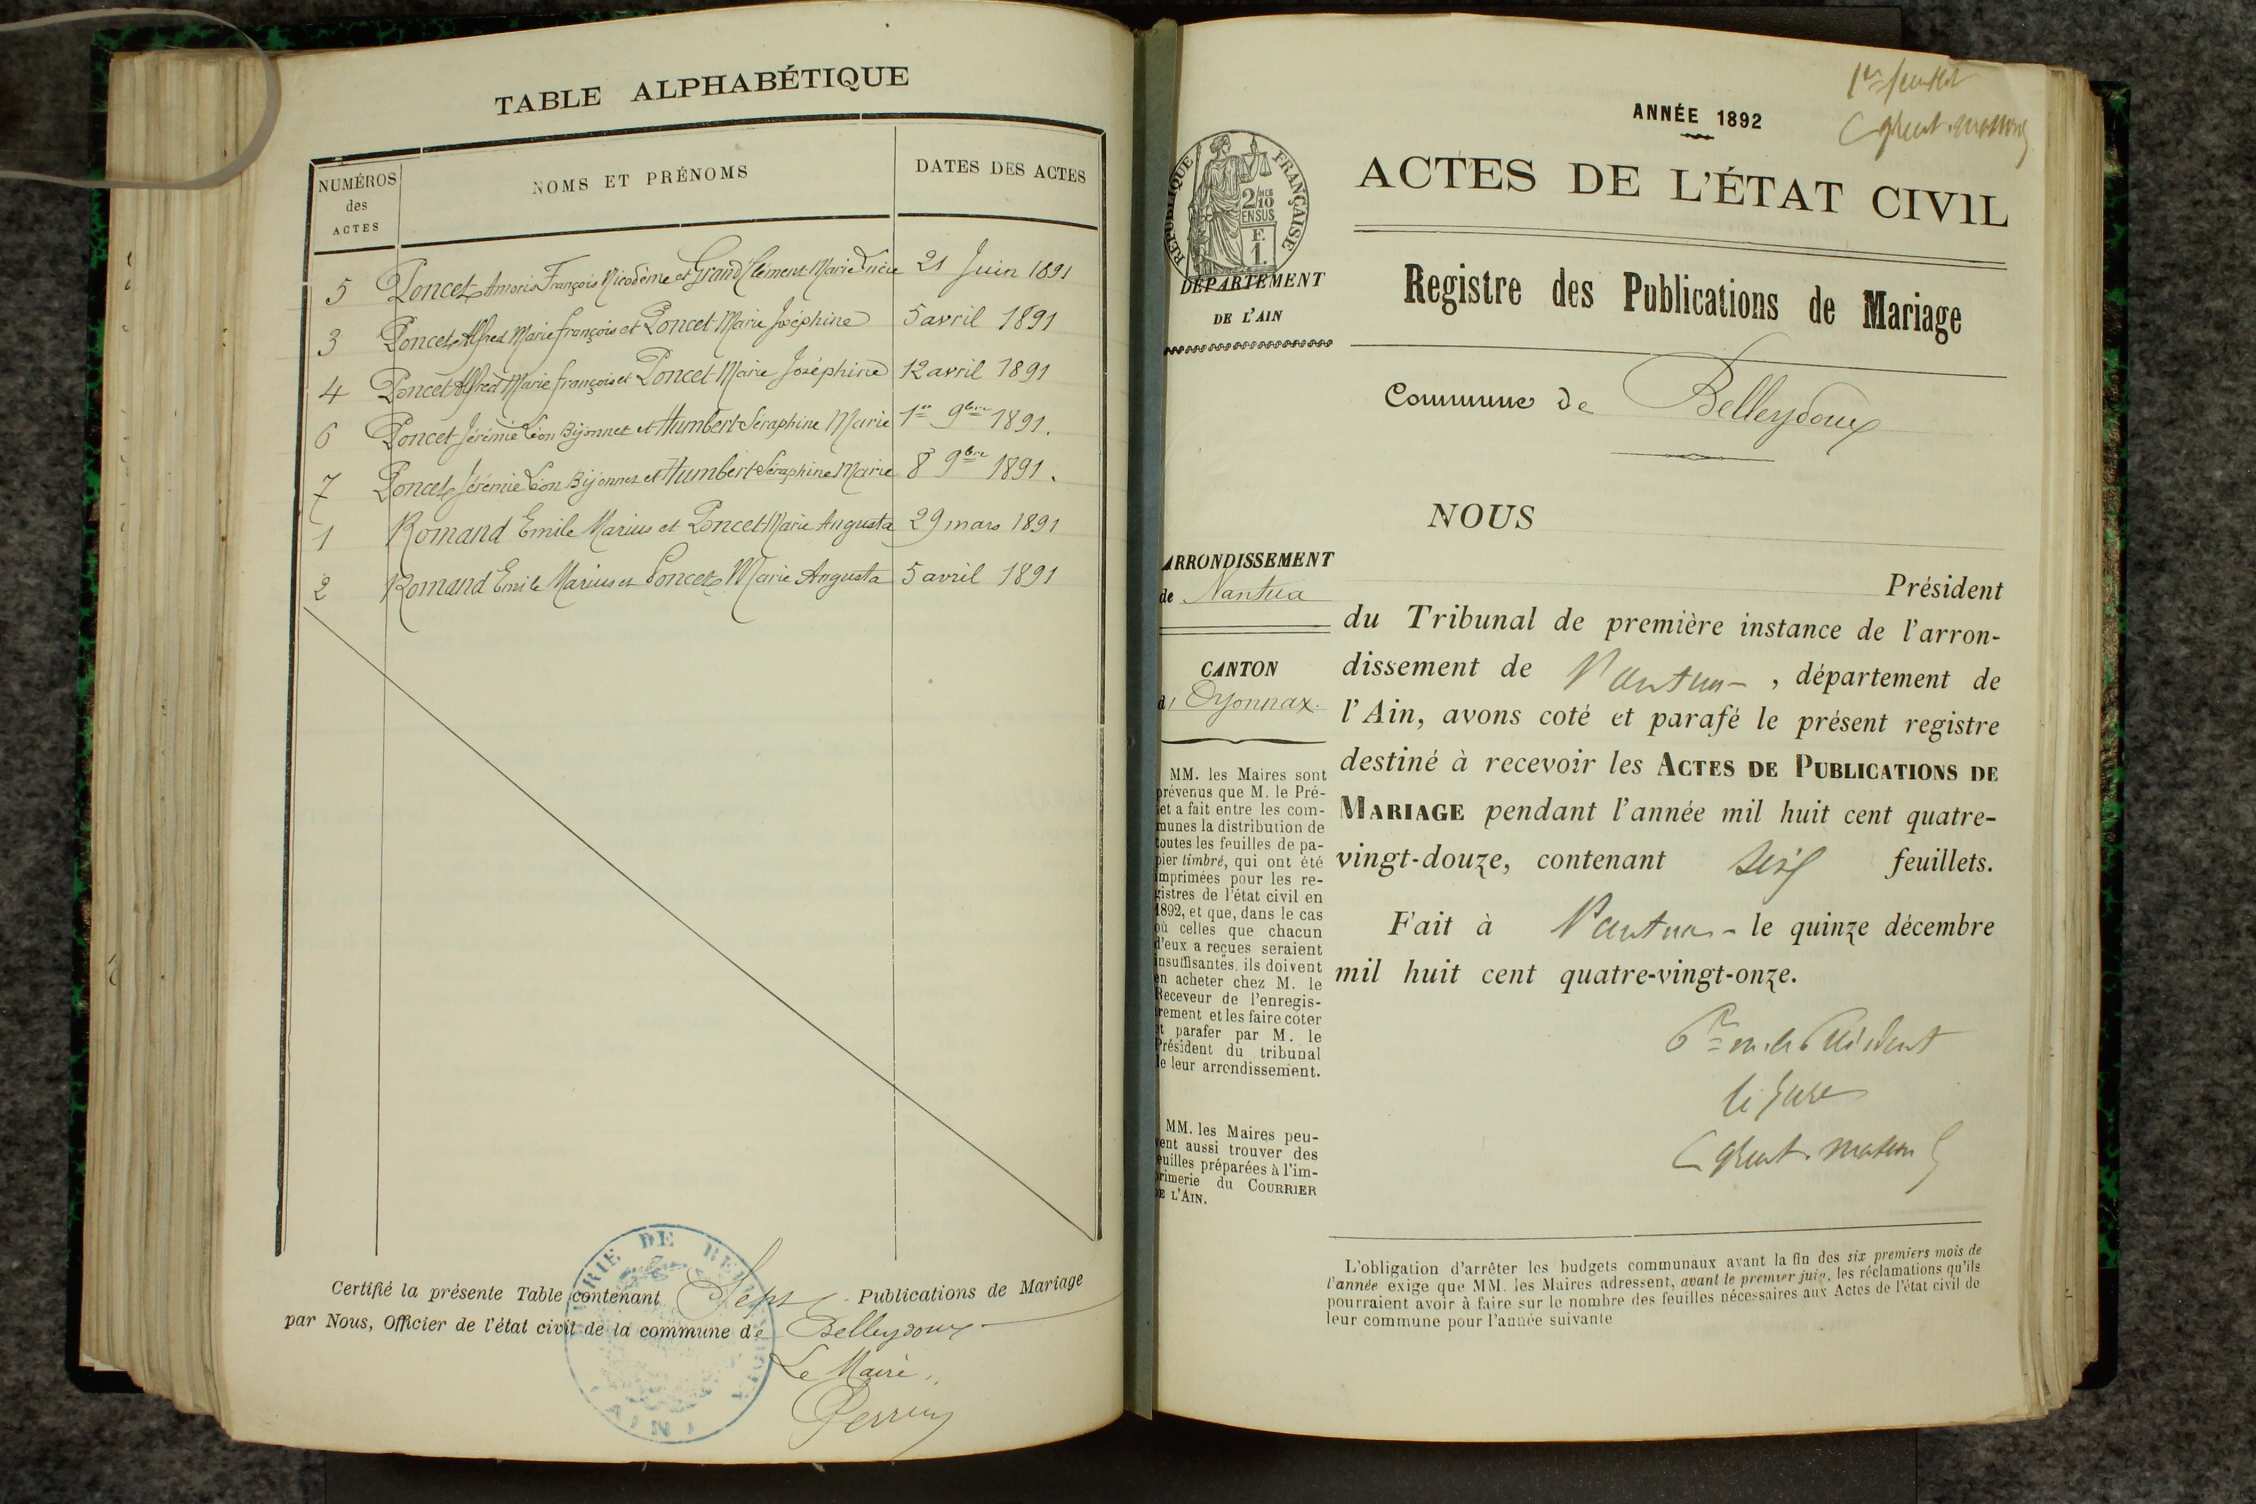 TABLE ALPHABÉTIQUE
NUMÉROS
des
ACTES
NOMS ET PRÉNOMS
DATES DES ACTES
5 Poncet François Nicodème et Grand Clément Marie 21 Juin 1891
3 Poncet Alfred Marie françois et Poncet Marie Joséphine 5 avril 1891
4 Poncet Alfred Marie françois et Poncet Marie Joséphine 12 avril 1891
6 Poncet Jérémie Léon Bijonnet et Humbert Séraphine Marie 1er 9bre 1891.
7 Poncet Jérémie Léon Bijonnet et Humbert Séraphine Marie 8 9bre 1891.
1 Romand Emile Marius et Poncet Marie Augusta 29 mars 1891
2 Romand Emile Marius et Poncet Marie Augusta 5 avril 1891
Certifié la présente Table contenant Sept Publications de Mariage
par Nous, Officier de l'état civil de la commune de Belleydoux
Le Maire,
Perrin
MAIRIE DE BELLEYDOUX
(AIN)
1er feuillet
ANNÉE 1892
ACTES DE L'ÉTAT CIVIL
Registre des Publications de Mariage
Commune de Belleydoux
RÉPUBLIQUE FRANÇAISE
2/10
EN SUS
F.
1.
DÉPARTEMENT
DE L'AIN
ARRONDISSEMENT
de Nantua
CANTON
d' Oyonnax.
MM. les Maires sont
prévenus que M. le Pré-
fet a fait entre les com-
munes la distribution de
toutes les feuilles de pa-
pier timbré, qui ont été
imprimées pour les re-
gistres de l'état civil en
1892, et que, dans le cas
où celles que chacun
d'eux a reçues seraient
insuffisantes, ils doivent
en acheter chez M. le
Receveur de l'enregis-
trement et les faire coter
et parafer par M. le
Président du tribunal
de leur arrondissement.
MM. les Maires peu-
vent aussi trouver des
feuilles préparées à l'im-
primerie du COURRIER
DE L'AIN.
NOUS
Président
du Tribunal de première instance de l'arron-
dissement de Nantua, département de
l'Ain, avons coté et parafé le présent registre
destiné à recevoir les ACTES DE PUBLICATIONS DE
MARIAGE pendant l'année mil huit cent quatre-
vingt-douze, contenant six feuillets.
Fait à Nantua le quinze décembre
mil huit cent quatre-vingt-onze.
Pr M. le Président
le Juge
L'obligation d'arrêter les budgets communaux avant la fin des six premiers mois de
l'année exige que MM. les Maires adressent, avant le premier juin, les réclamations qu'ils
pourraient avoir à faire sur le nombre des feuilles nécessaires aux Actes de l'état civil de
leur commune pour l'année suivante